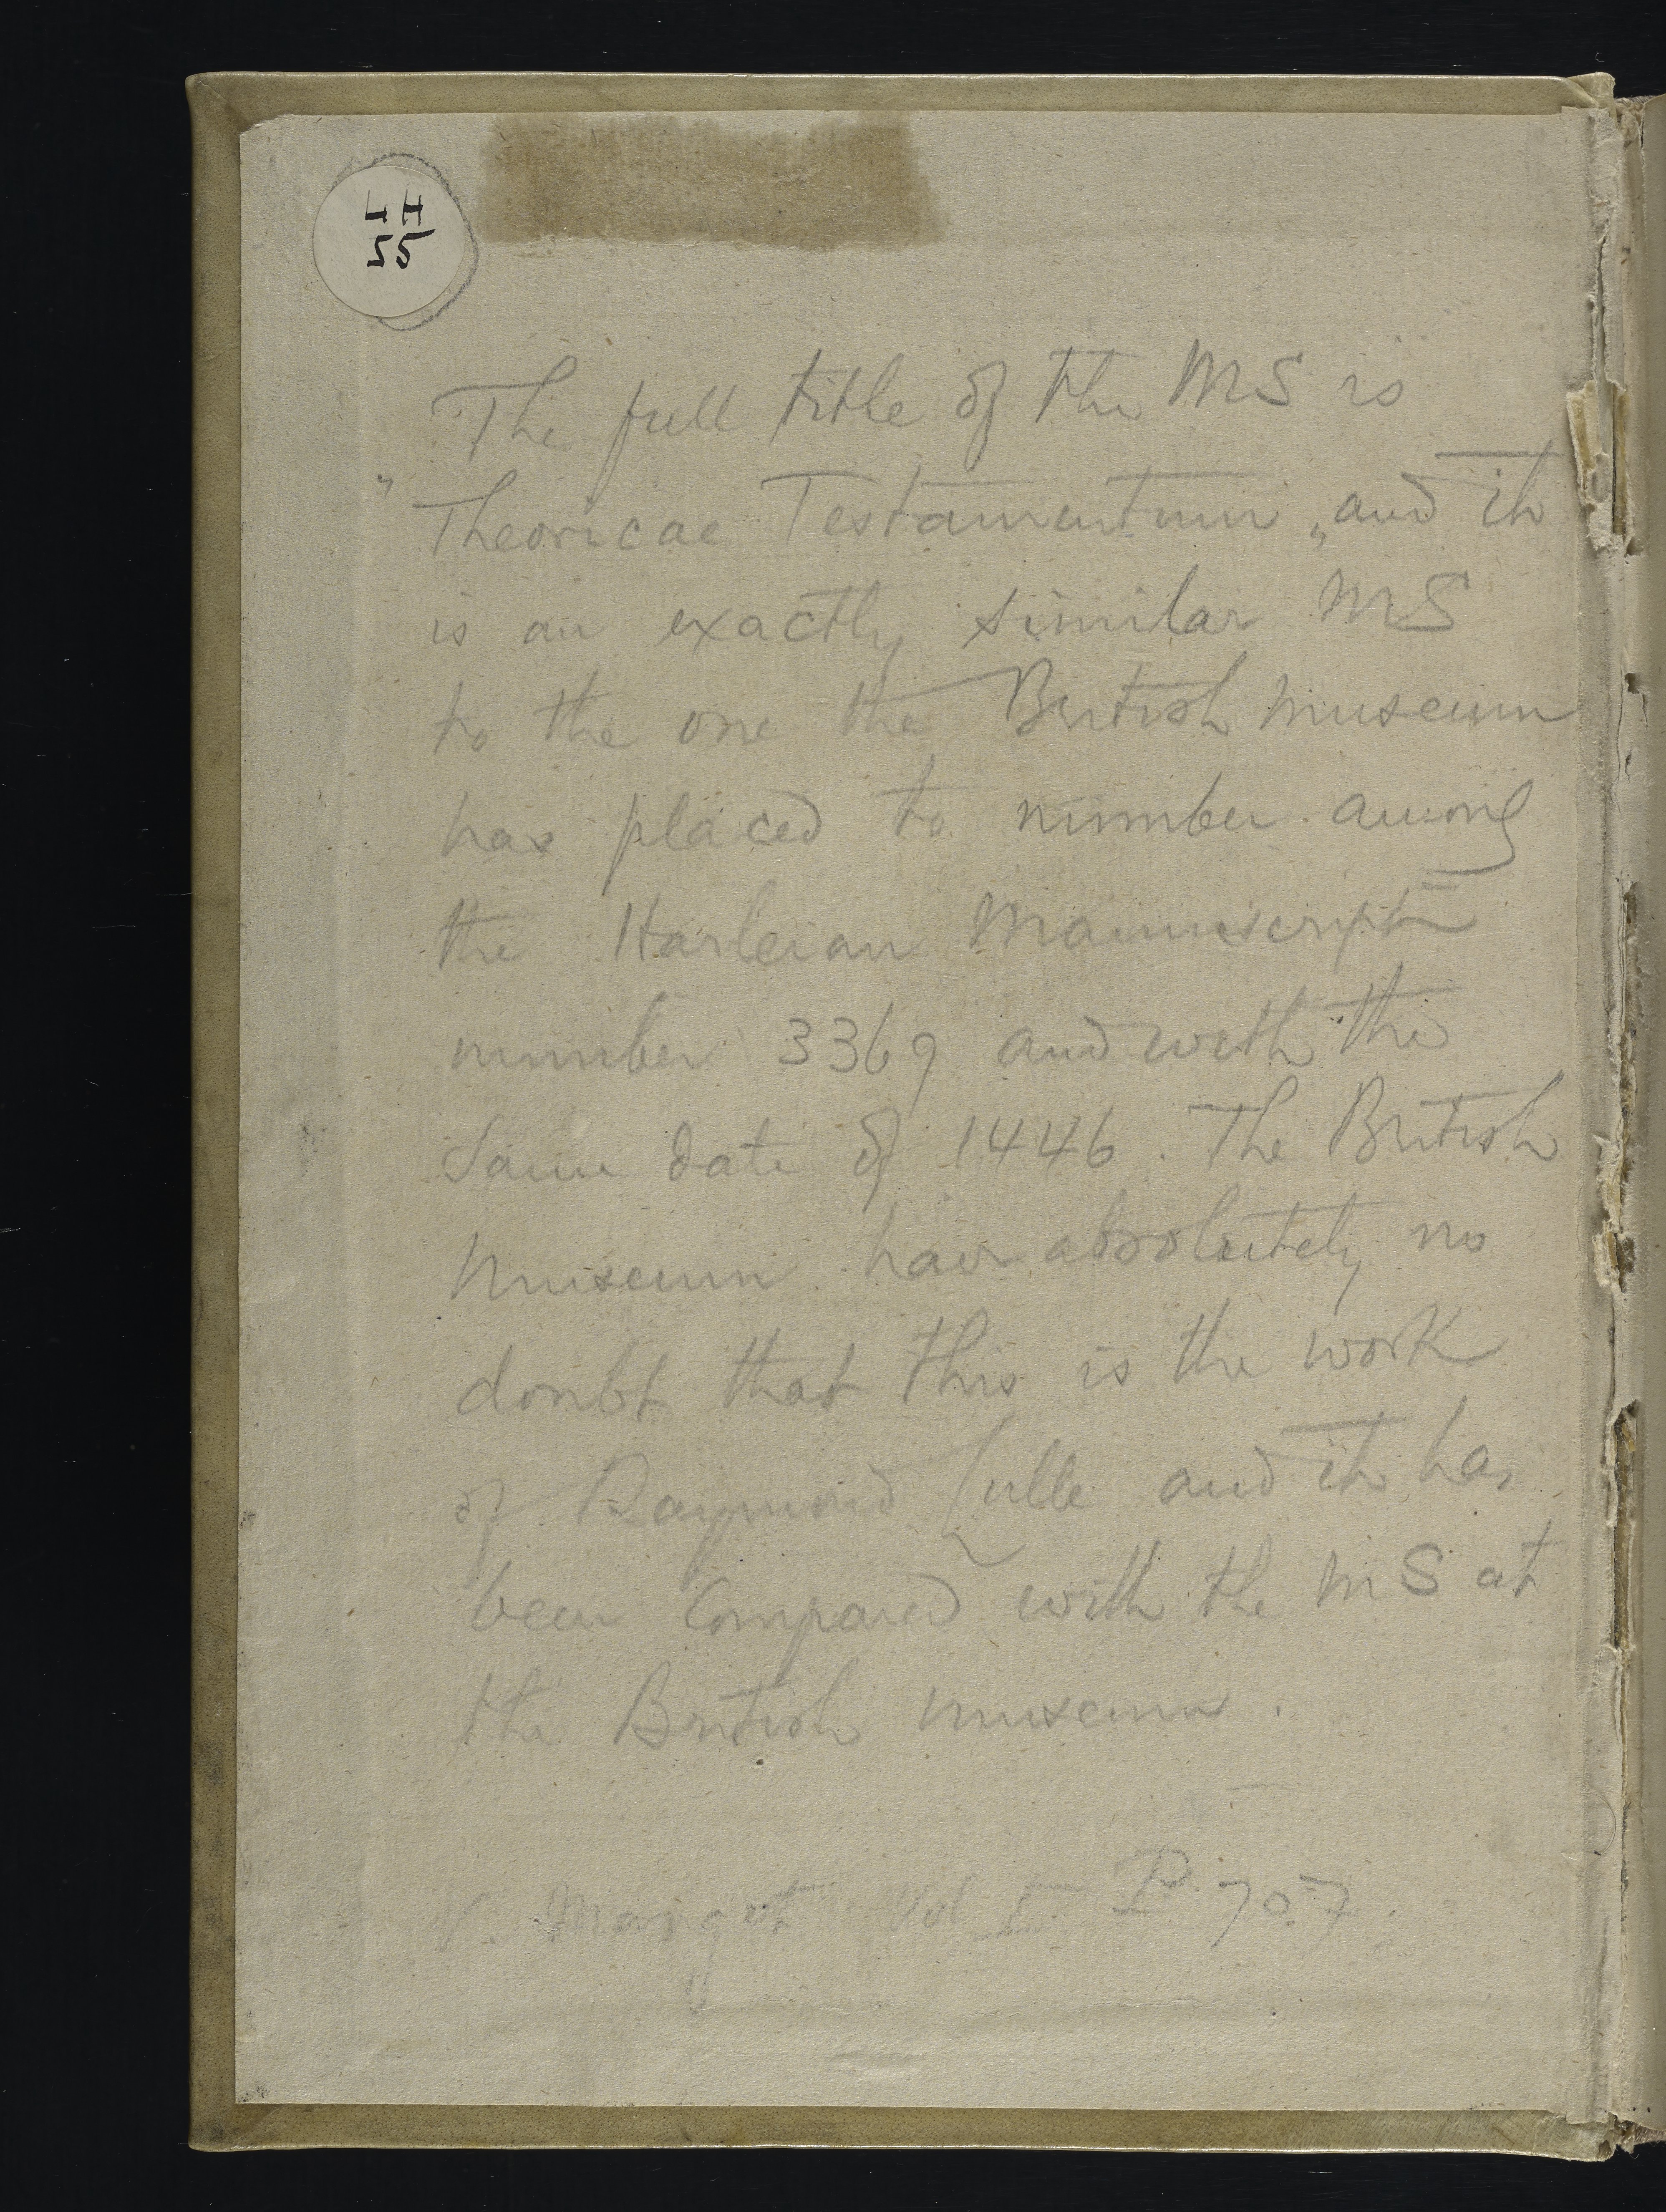 LH
55
The full title of the MS is
"Theoricae Testamentum„ and it
is an exactly similar MS
to the one the British Museum
has placed to number among
the Harleian Manuscript
number 3369 and with the
same date of 1446. The British
Museum have absolutely no
doubt that this is the work
of Raymond Lulle and it has
been compared with the MS at
the British Museum.
V. Vol I P. 707.